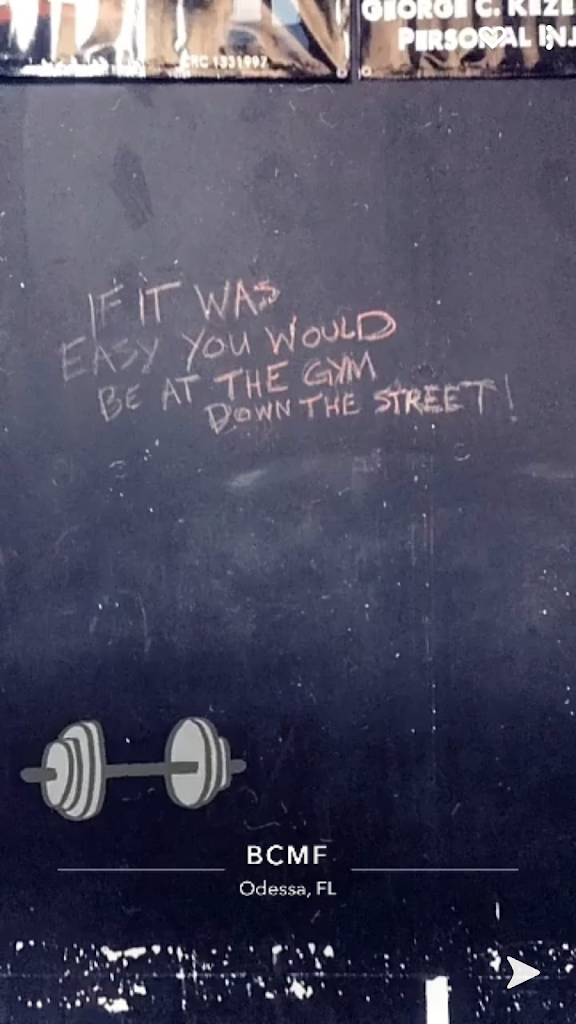 CRC 1331997
GEORGE C. KEZE
PERSONAL INJ
IF IT WAS
EASY YOU WOULD
BE AT THE GYM
DOWN THE STREET!
BCMF
Odessa, FL